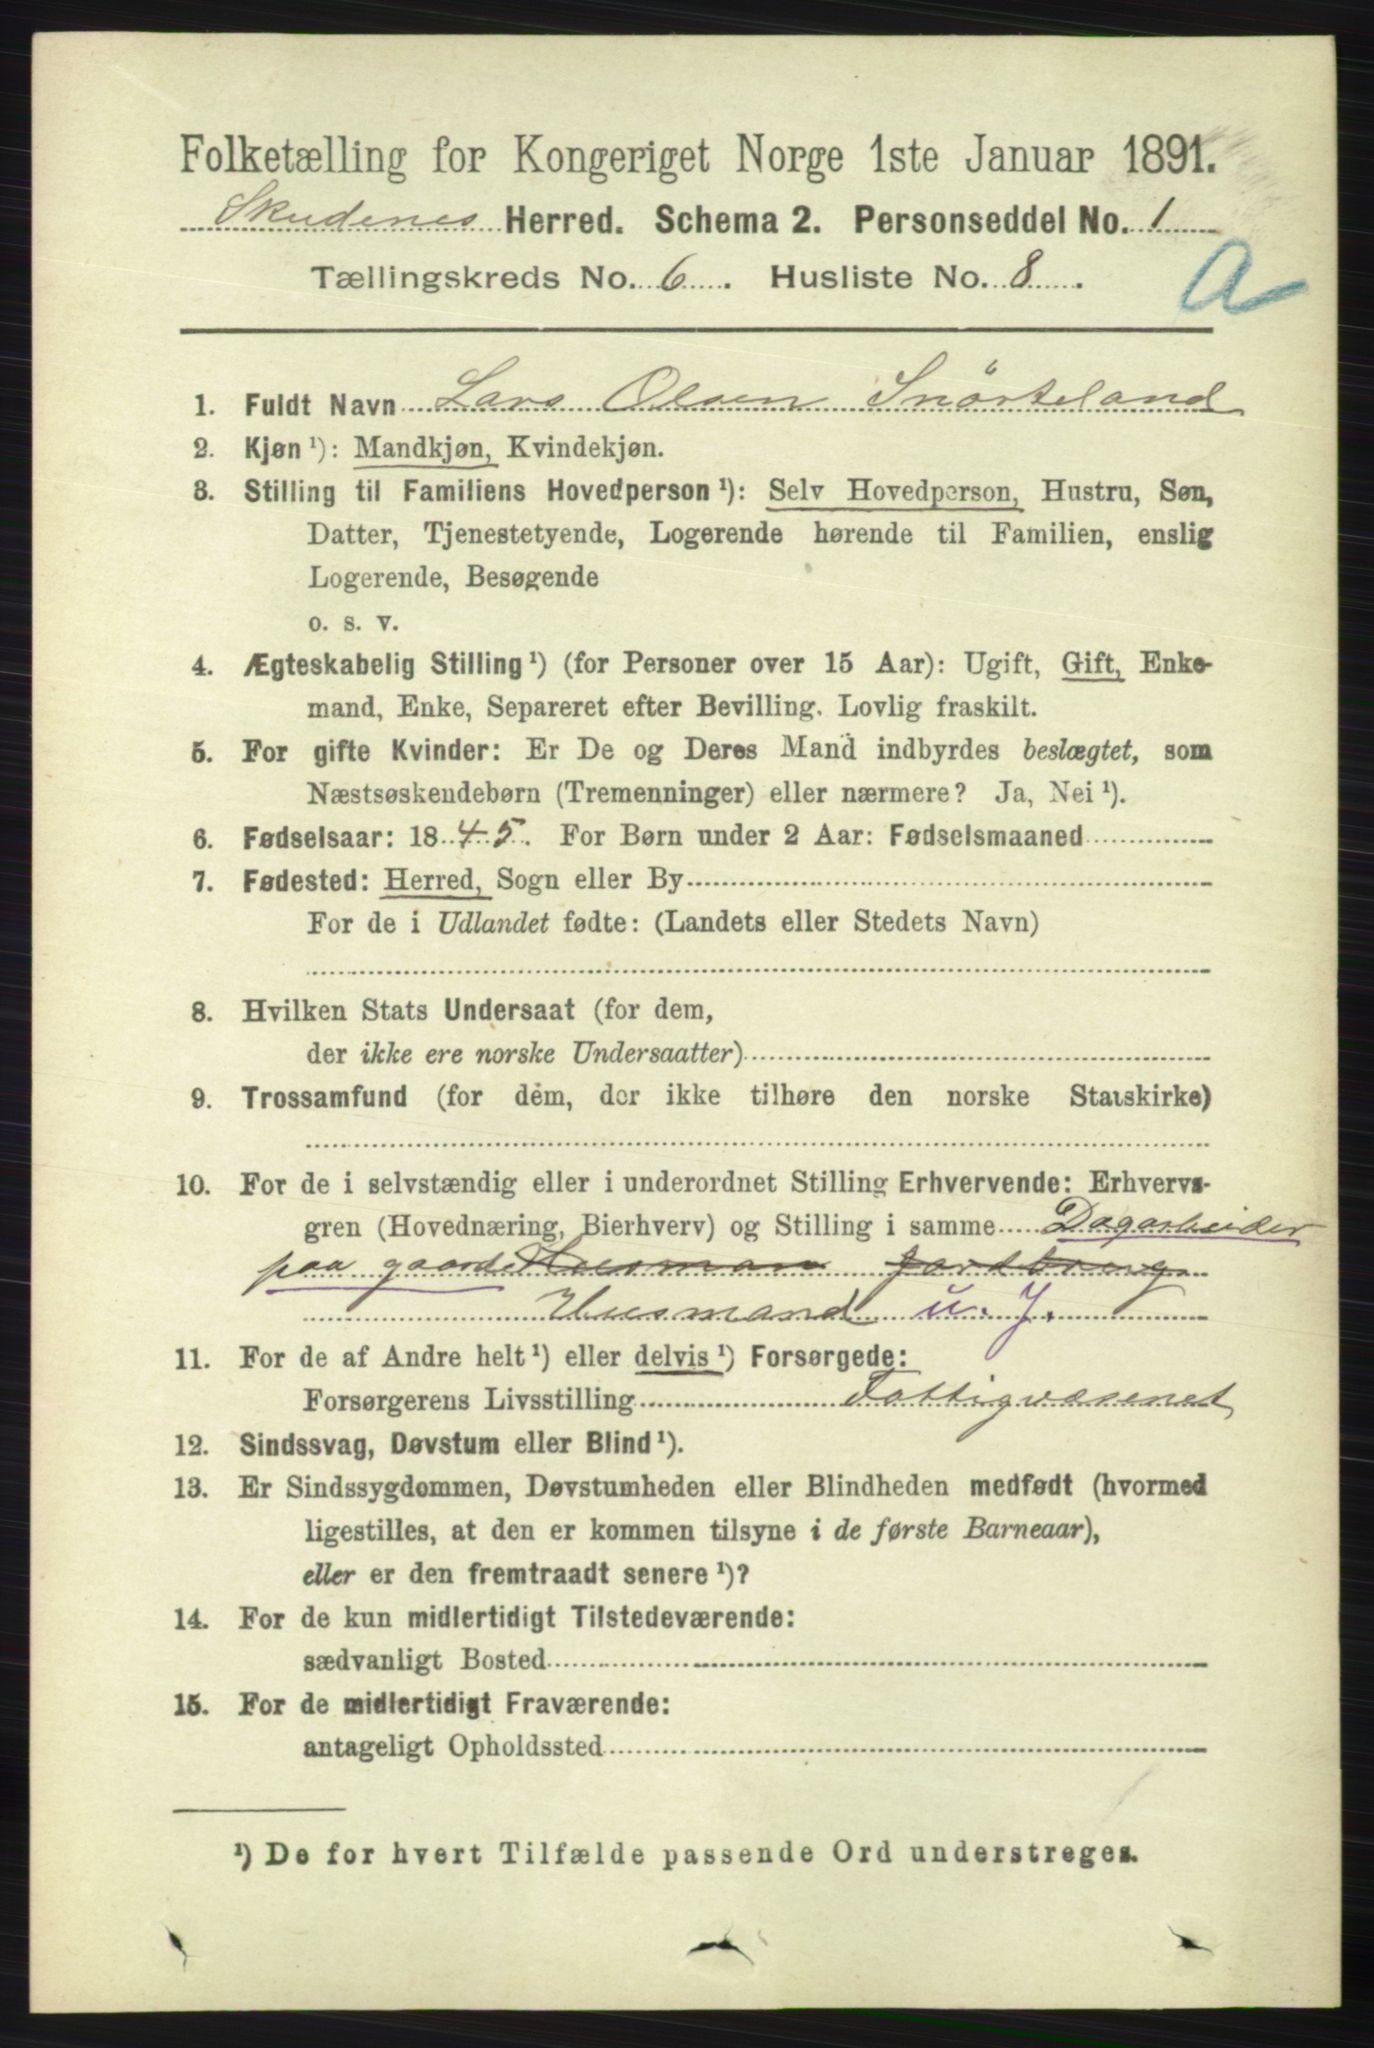 Folketælling for Kongeriget Norge 1ste Januar 1891.
Skudenes Herred. Schema 2. Personseddel No. 1
Tællingskreds No. 6. Husliste No. 8.
a
1. Fuldt Navn Lars Olsen Snörteland
2. Kjøn ¹): Mandkjøn, Kvindekjøn.
3. Stilling til Familiens Hovedperson ¹): Selv Hovedperson, Hustru, Søn,
Datter, Tjenestetyende, Logerende hørende til Familien, enslig
Logerende, Besøgende
o. s. v.
4. Ægteskabelig Stilling ¹) (for Personer over 15 Aar): Ugift, Gift, Enke-
mand, Enke, Separeret efter Bevilling. Lovlig fraskilt.
5. For gifte Kvinder: Er De og Deres Mand indbyrdes beslægtet, som
Næstsøskendebørn (Tremenninger) eller nærmere? Ja, Nei ¹).
6. Fødselsaar: 1845. For Børn under 2 Aar: Fødselsmaaned
7. Fødested: Herred, Sogn eller By
For de i Udlandet fødte: (Landets eller Stedets Navn)
8. Hvilken Stats Undersaat (for dem,
der ikke ere norske Undersaatter)
9. Trossamfund (for dem, der ikke tilhøre den norske Statskirke)
10. For de i selvstændig eller i underordnet Stilling Erhvervende: Erhvervs-
gren (Hovednæring, Bierhverv) og Stilling i samme Dagarbeider
paa gaarde Husmand Jordbrug
Husmand u. J.
11. For de af Andre helt ¹) eller delvis ¹) Forsørgede:
Forsørgerens Livsstilling Fattigvæsenet
12. Sindssvag, Døvstum eller Blind ¹).
13. Er Sindssygdommen, Døvstumheden eller Blindheden medfødt (hvormed
ligestilles, at den er kommen tilsyne i de første Barneaar),
eller er den fremtraadt senere ¹)?
14. For de kun midlertidigt Tilstedeværende:
sædvanligt Bosted
15. For de midlertidigt Fraværende:
antageligt Opholdssted
¹) De for hvert Tilfælde passende Ord understreges.